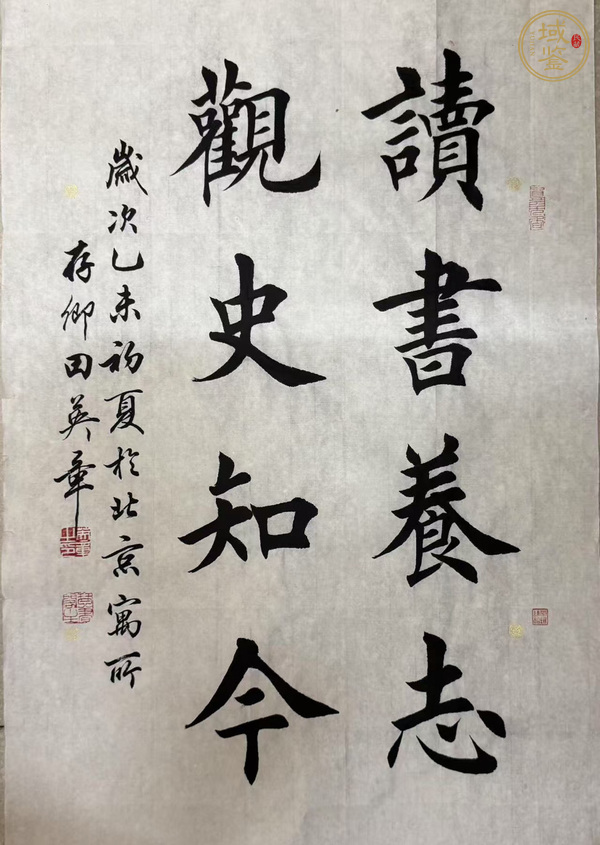 讀書養志
觀史知今
歲次乙未初夏於北京寓所
存卿田英章
域鑒